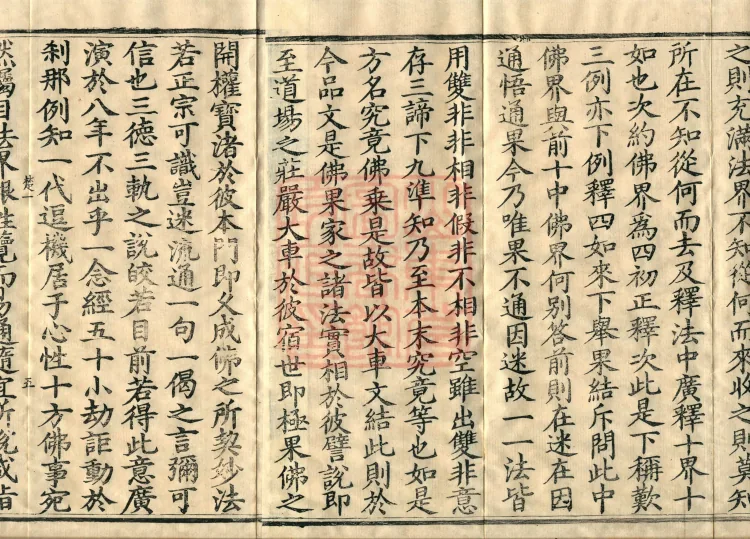 之則充滿法界不知從何而來收之則莫知
所在不知從何而去及釋法中廣釋十界十
如也次約佛界爲四初正釋次此是下稱歎
三例亦下例釋四如來下舉果結斥問此中
佛界與前十中佛界何別答前則在迷在因
通悟通果今乃唯果不通因迷故一一法皆
用雙非非相非假非不相非空雖出雙非意
存三諦下九準知乃至本末究竟等也如是
方名究竟佛乘是故皆以大車文結此則於
今品文是佛果家之諸法實相於彼譬說即
至道場之莊嚴大車於彼宿世即極果佛之
開權寶渚於彼本門即久成佛之所契妙法
若正宗可識豈迷流通一句一偈之言彌可
信也三德三軌之說皎若目前若得此意廣
演於八年不出乎一念經五十小劫詎動於
剎那例知一代逗機居于心性十方佛事宛
楚一 五
然屬目法界根性覽而易通隨宜所說咸皆